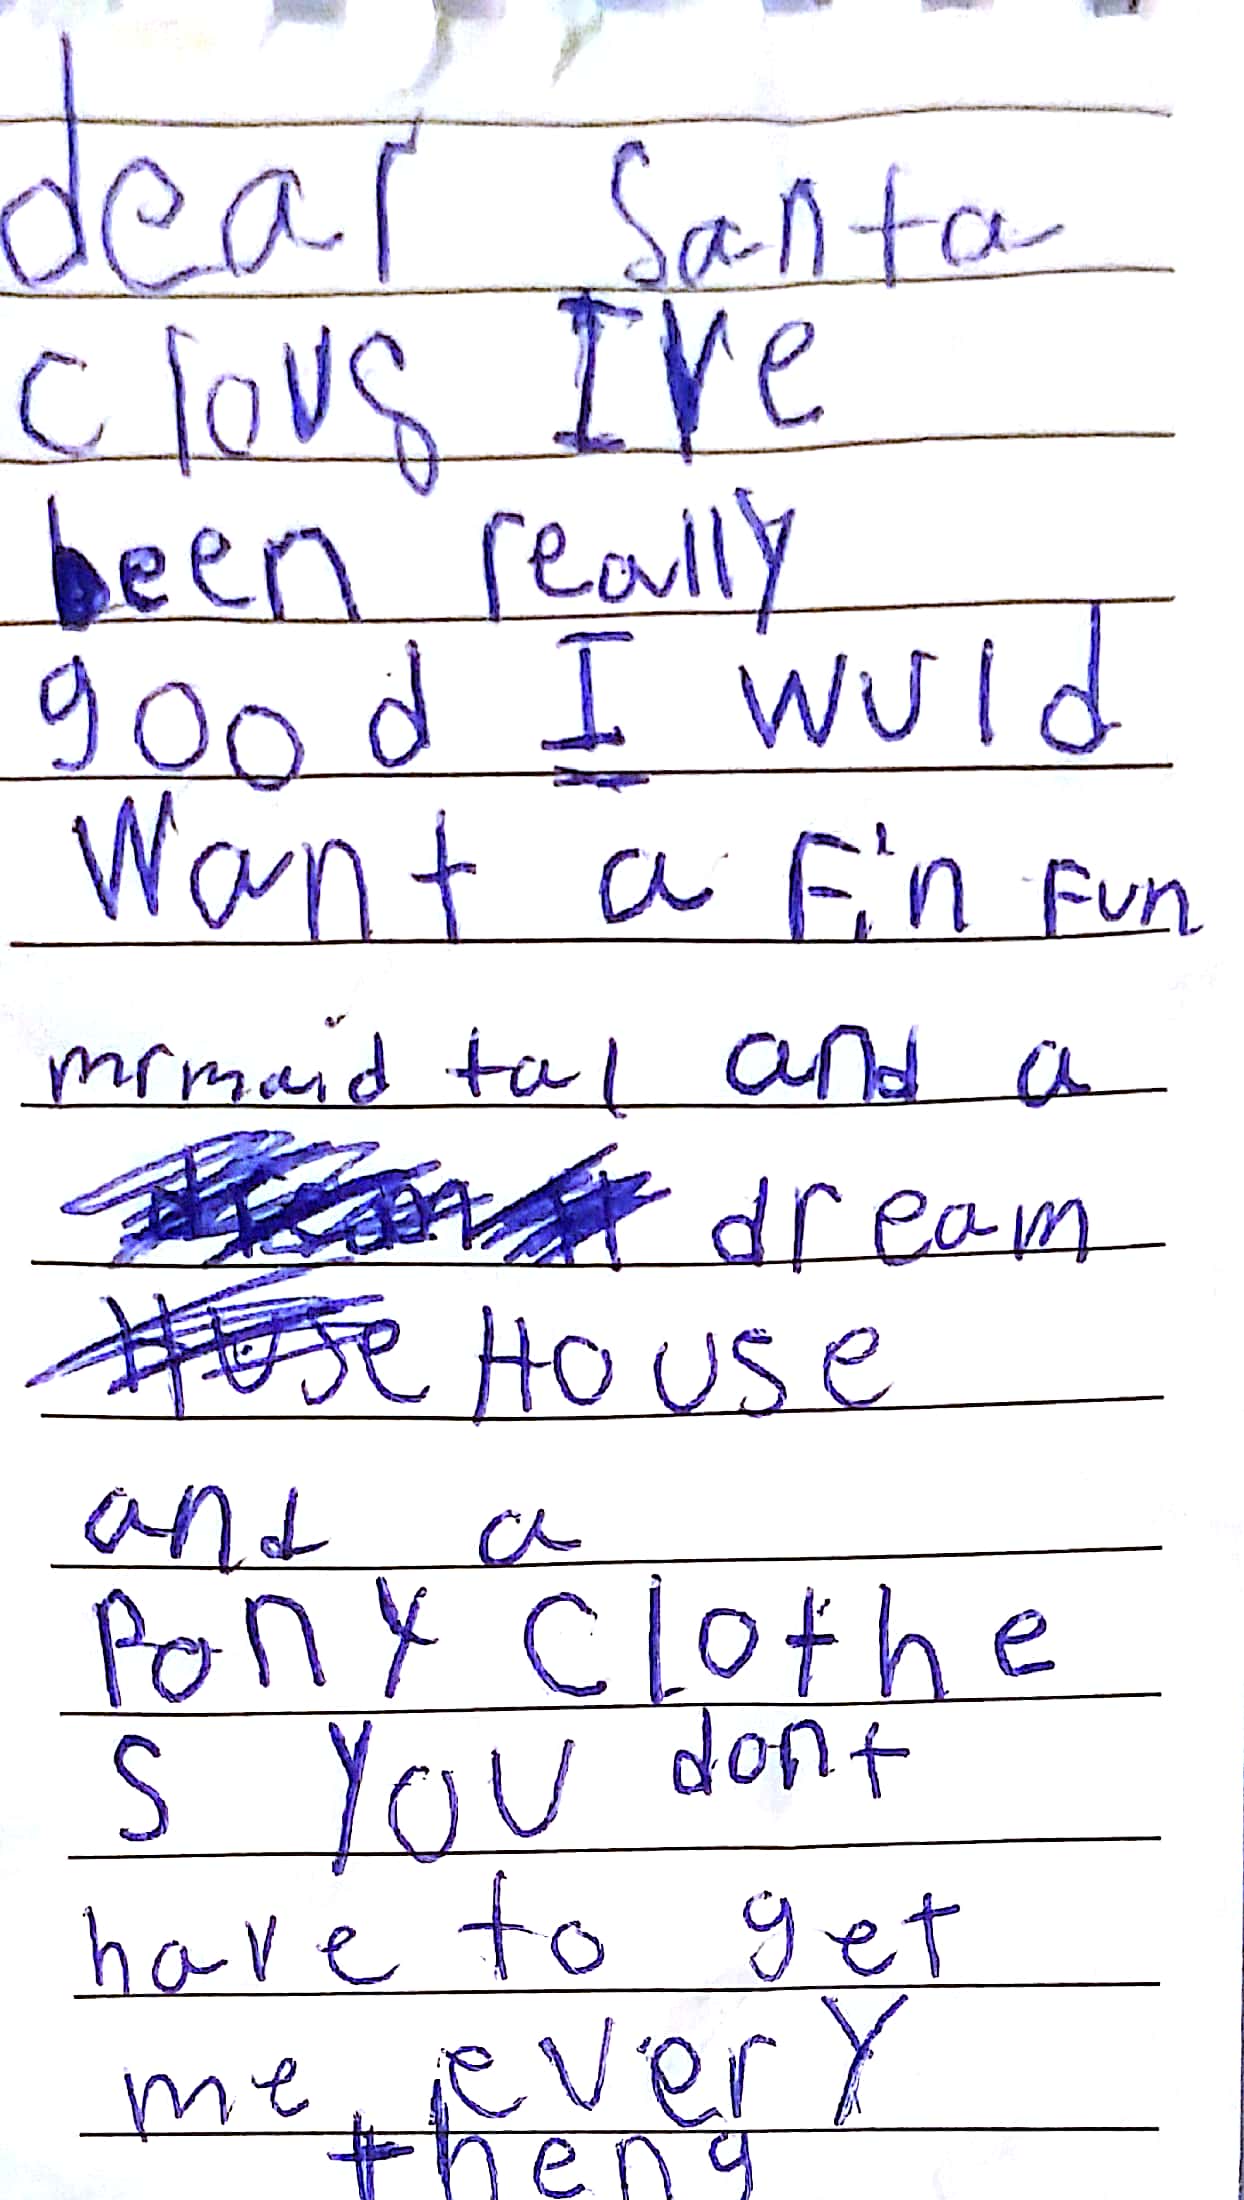 dear Santa
clous Ive
been really
good I wuld
want a Fin Fun
mrmaid tal and a
dream
Huse House
and a
Pony Clothe
s you dont
have to get
me every
theng